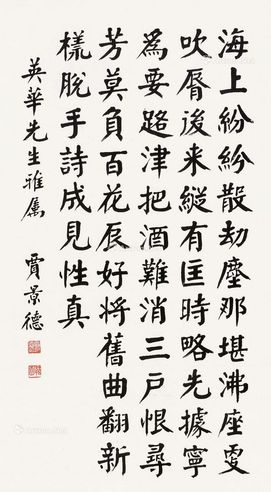 海上紛紛散劫塵那堪沸座更
吹脣後来縱有匡時略先據寧
為要路津把酒難消三户恨尋
芳莫負百花辰好將舊曲翻新
樣脫手詩成見性真
英華先生雅屬 賈景德